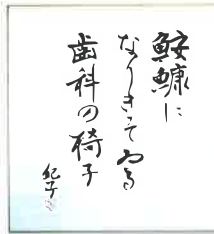 鮟鱇に
なりきってゐる
歯科の椅子
紀子